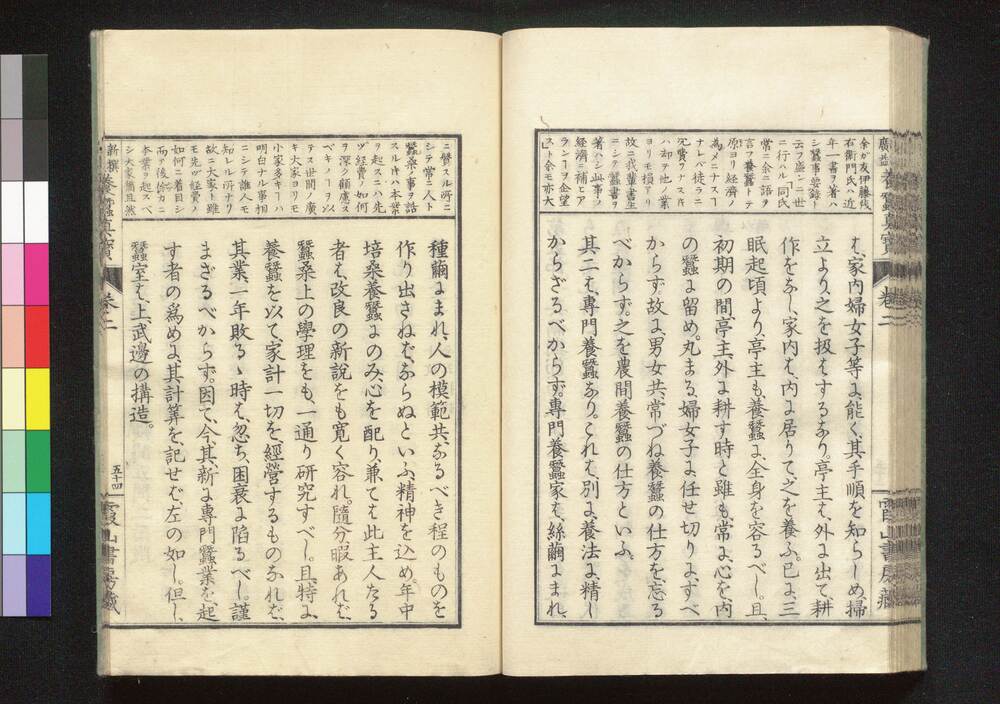 余ガ友伊藤茂
右衛門氏ハ近
年一書ヲ著ハ
シ蠶事要錄ト
云フ盛ンニ世
ニ行ハル「同氏
常ニ余ニ語ヲ
言フ養蠶トテ
原ヨリ經濟ノ
為メニナスヿ
ナレバ徒ラニ
冗費ヲナスキ
ハ却テ他ノ業
ヨリモ損アリ
故ニ我輩書生
ニシテ蠶書ヲ
著ハシ此事ノ
經濟ニ補ヒア
ランヿヲ企望
スト」余モ亦大
は、家内婦女子等に、能く、其手順を知らしめ、掃
立より、之を扱はするなり。亭主は、外に出て、耕
作をなし、家内は、内に居りて、之を養ふ。已に、三
眠起頃より、亭主も、養蠶に、全身を容るべし。且、
初期の間、亭主、外に耕す時と雖も、常に、心を、内
の蠶に留め。丸まる、婦女子に、任せ切りにすべ
からず。故に、男女共、常づね、養蠶の仕方を忘る
べからず。之を、農間養蠶の仕方といふ。
其二は、專門養蠶なり。これは、別に、養法に、精し
からざるべからず。專門養蠶家は、絲繭にまれ、
新撰養蠶眞寶
卷二
五十四
霞山書房藏
ニ賛スル所ニ
シテ常ニ人ト
蠶桑ノ事ヲ話
スルキハ本業
ヲ起スニハ先
ヅ經費ノ如何
ヲ深ク顧慮ス
ベキノヿヲ以
テス世間ノ廣
キ大家ヨリモ
小家多キヿハ
明白ナル事相
ニシテ誰人モ
知レル所ナリ
故ニ大家ト雖
モ先ヅ經費ノ
如何ニ着目シ
而ヲ後徐カニ
本業ヲ起スベ
シ大家猶且然
種繭にまれ、人の模範共なるべき程のものを
作り出さねば、ならぬといふ、精神を込め。年中
培桑養蠶にのみ心を配り、兼ては、此主人たる
者は、改良の新說をも寬く容れ。隨分暇あれば、
蠶桑上の學理をも、一通り研究すべし。且、特に、
養蠶を以て、家計一切を經營するものなれば、
其業、一年敗るゝ時は、忽ち、困衰に陷るべし。謹
まざるべからず。因て、今、其、新に專門蠶業を起
す者の爲めに、其計算を、記せば、左の如し。但し、
蠶室は、上武邊の構造。